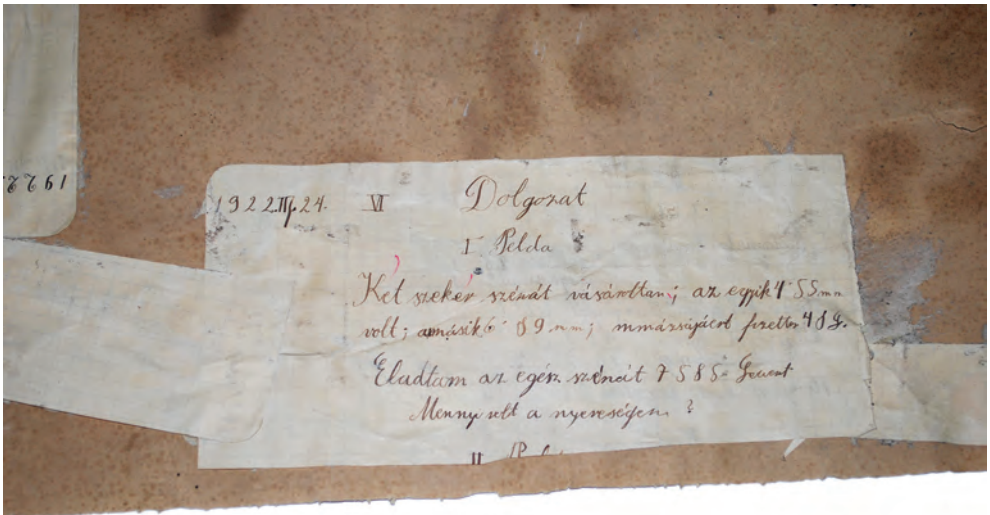 1922.
1922. 24. VI Dolgozat
I Pelda
Két szekér szénát vásároltam; az egyik 4 55 mm
volt; amásik 6 89 mm; mmázsájáért fizettem 48
Eladtam az egész szénát 7585
Menny volt a nyereségem ?
II